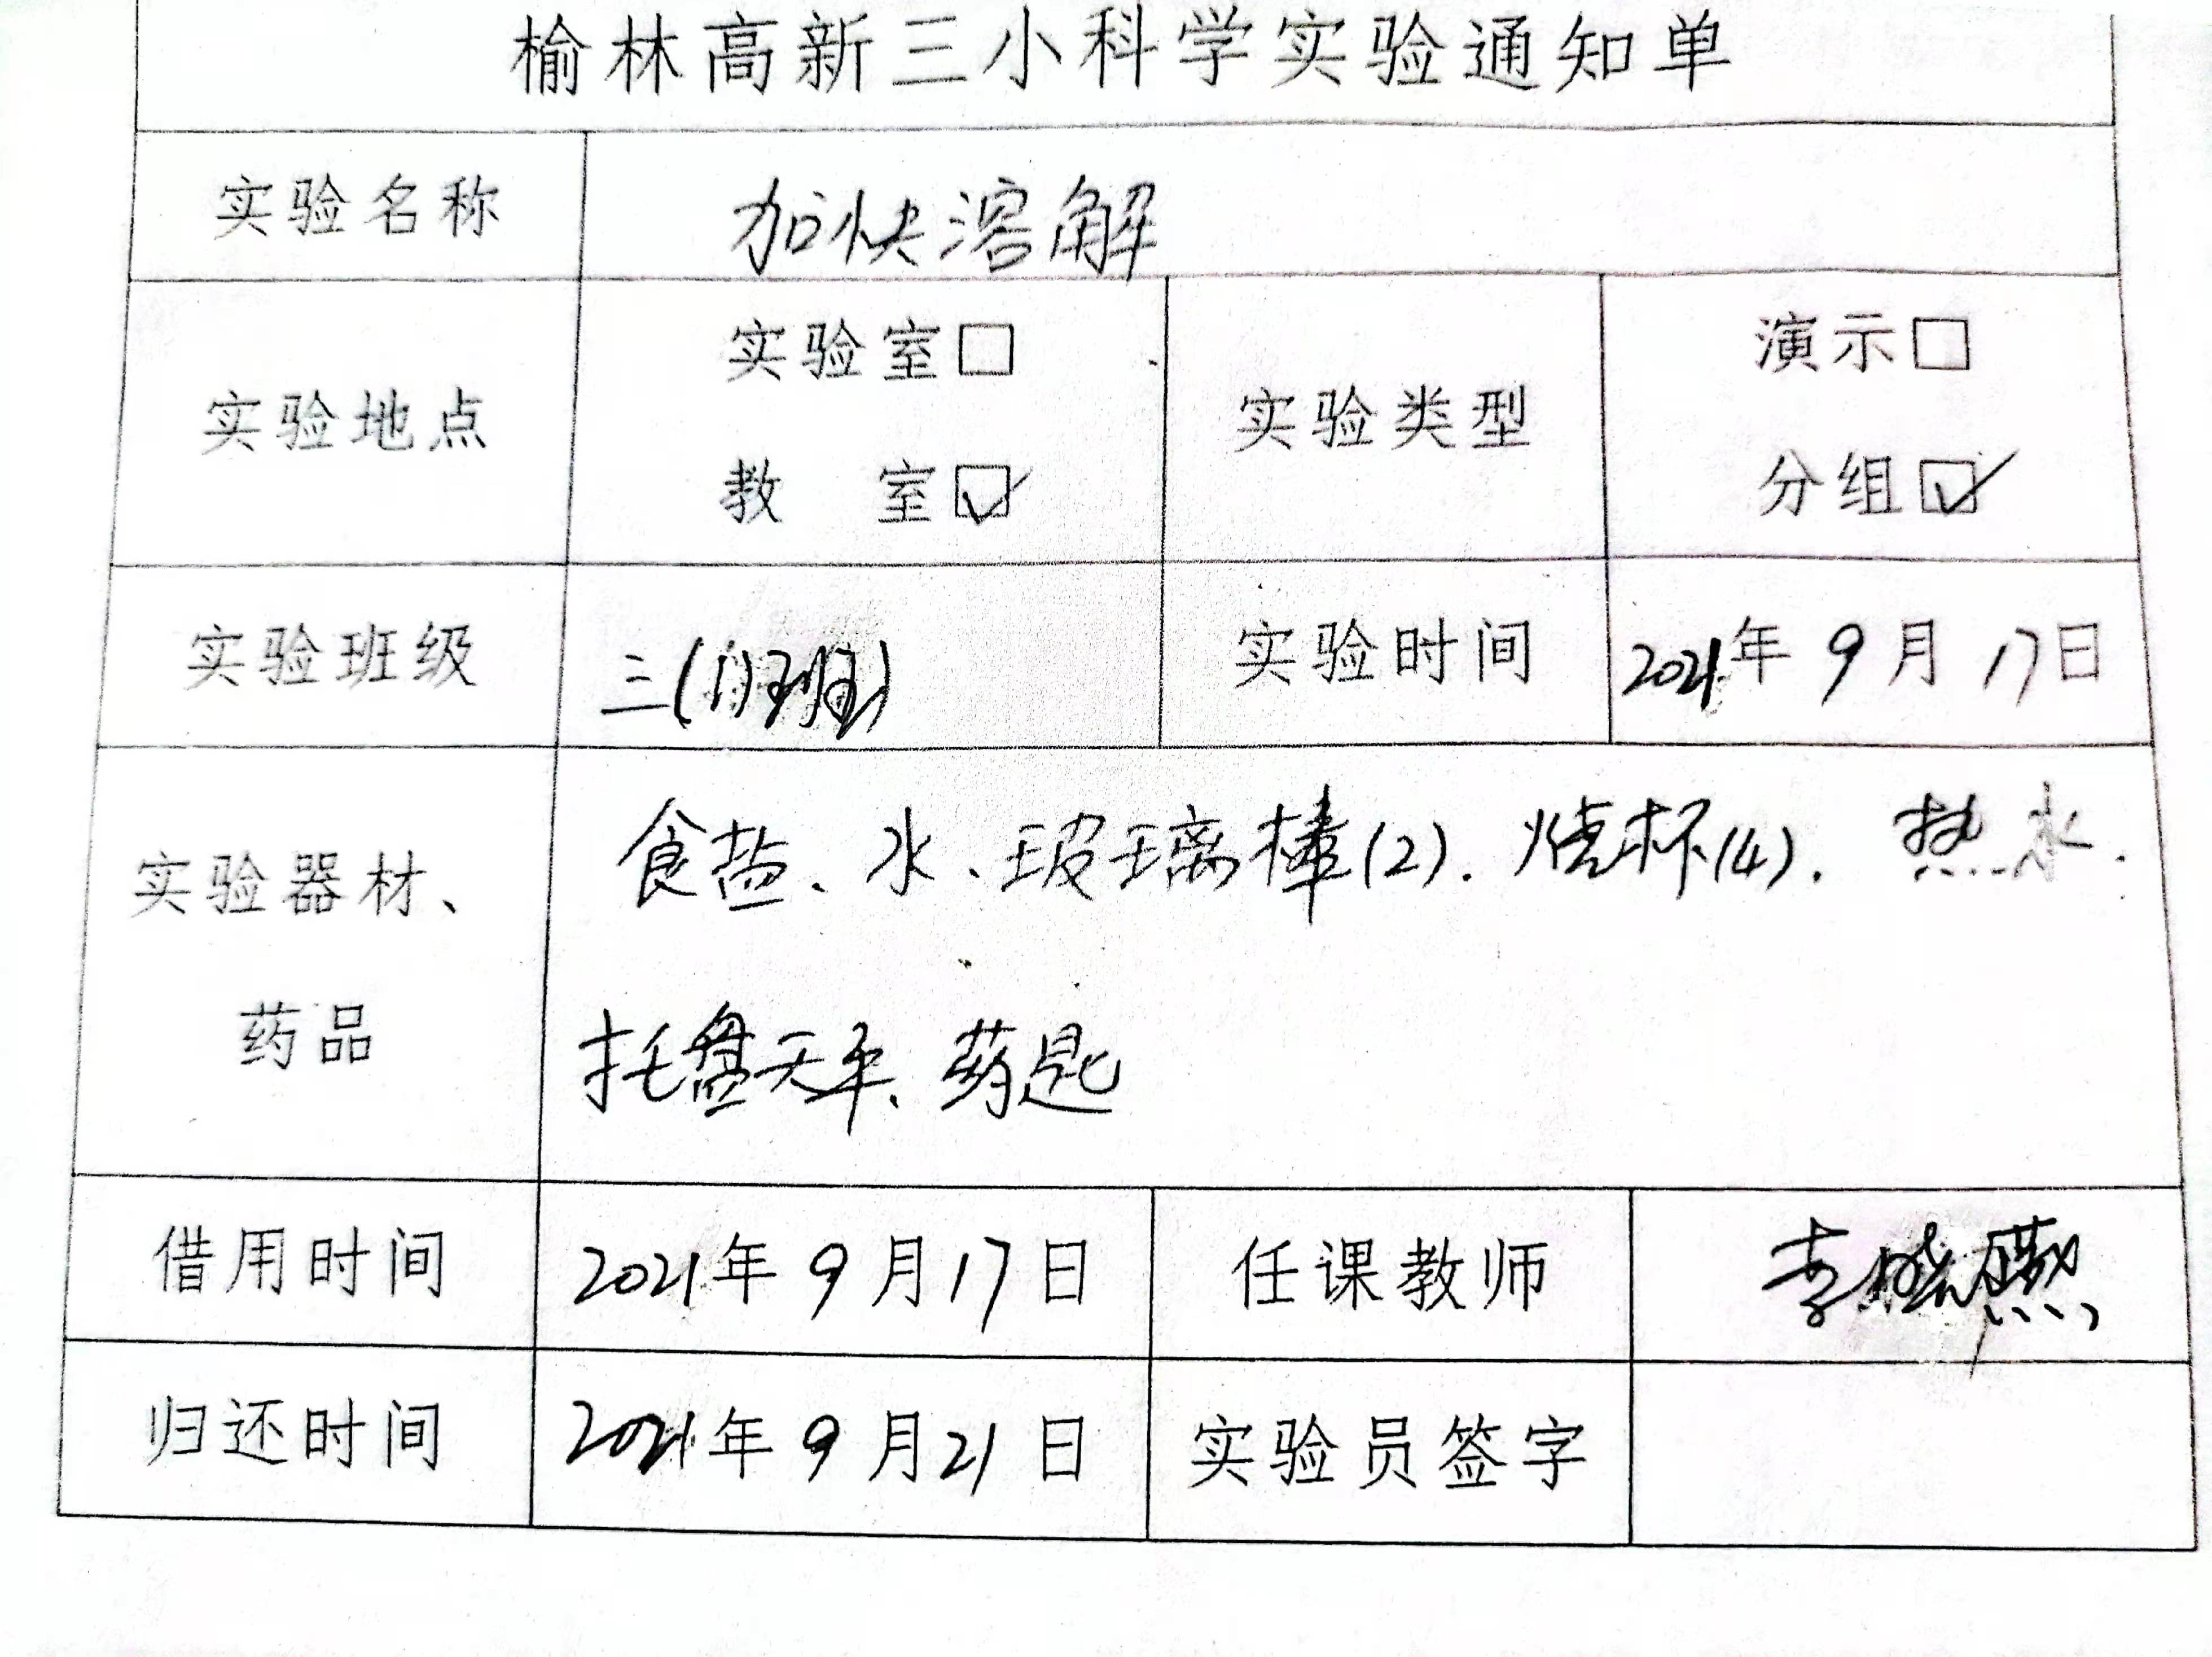 榆林高新三小科学实验通知单
实验名称 加快溶解
实验地点 实验室□ 教 室☑ 实验类型 演示□ 分组☑
实验班级 三(1)班 实验时间 2021年9月17日
实验器材、药品 食盐、水、玻璃棒(2).烧杯(4).热水.
托盘天平、药匙
借用时间 2021年9月17日 任课教师 李晓燕
归还时间 2021年9月21日 实验员签字